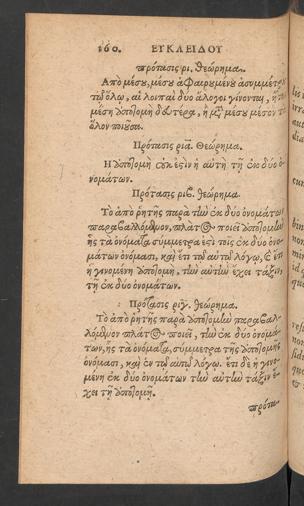 160. ΕΥΚΛΕΙΔΟΥ
πρότασις ρι. θεώρημα.
Ἀπὸ μέσου, μέσου ἀφαιρουμένου ἀσυμμέτρου
τῷ ὅλῳ, αἱ λοιπαὶ δύο ἄλογοι γίνονται, ἤτοι
μέση ἀποτομὴ δευτέρα, ἢ μετὰ μέσου μέσον τὸ
ὅλον ποιοῦσα.
Πρότασις ρια. Θεώρημα.
Ἡ ἀποτομὴ οὐκ ἔστιν ἡ αὐτὴ τῇ ἐκ δύο ὀ-
νομάτων.
Πρότασις ριβ. θεώρημα.
Τὸ ἀπὸ ῥητῆς παρὰ τὴν ἐκ δύο ὀνομάτων
παραβαλλόμενον, πλάτος ποιεῖ ἀποτομὴν
ἧς τὰ ὀνόματα σύμμετρα ἐστὶ τοῖς ἐκ δύο ὀνο-
μάτων ὀνόμασι, καὶ ἔτι τῷ αὐτῷ λόγῳ, καὶ ἔτι
ἡ γενομένη ἀποτομὴ, τὴν αὐτὴν ἔχει τάξιν,
τῇ ἐκ δύο ὀνομάτων.
Πρότασις ριγ. θεώρημα.
Τὸ ἀπὸ ῥητῆς παρὰ ἀποτομὴν παραβαλ-
λόμενον πλάτος ποιεῖ, τὴν ἐκ δύο ὀνομά-
των, ἧς τὰ ὀνόματα, σύμμετρα τῆς ἀποτομῆς
ὀνόμασι, καὶ ἐν τῷ αὐτῷ λόγῳ. ἔτι δὲ ἡ γινο-
μένη ἐκ δύο ὀνομάτων τὴν αὐτὴν τάξιν ἔ-
χει τῇ ἀποτομῇ.
πρότα-